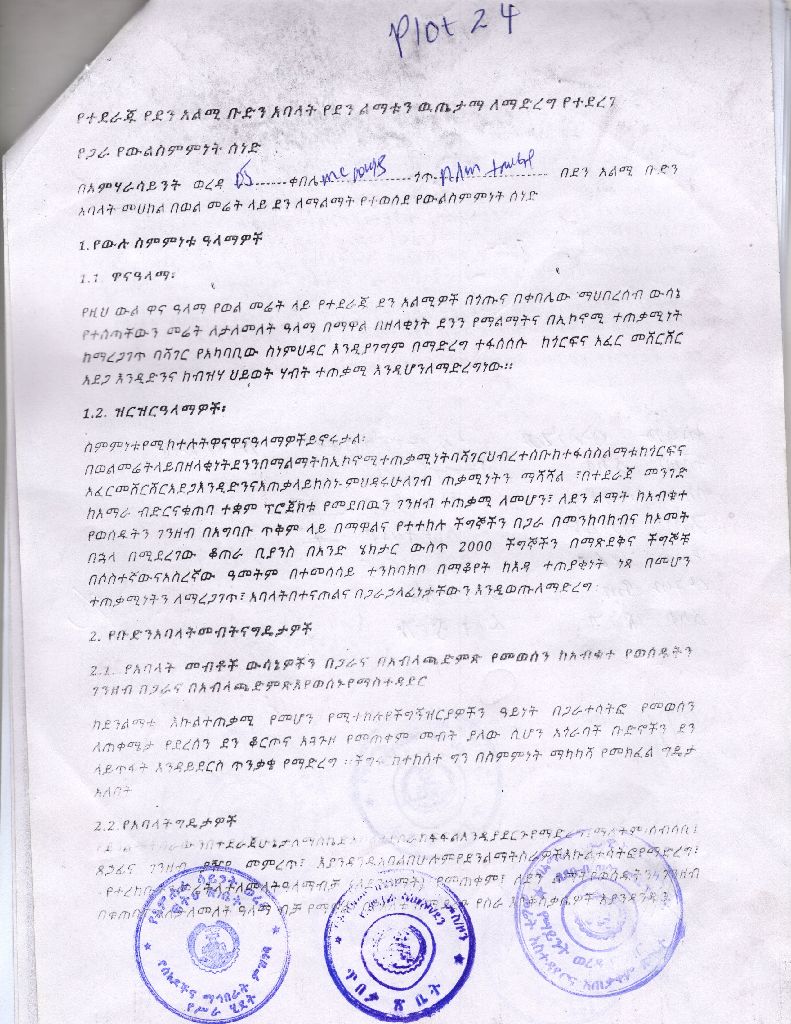 Plot 24
የተደራጁ የደን አልሚ ቡድን አባላት የደን ልማቱን ዉጤታማ ለማድረግ የተደረገ
የጋራ የውልስምምነት ሰነድ
በአምሃራሳይንት ወረዳ 05 ------ ቀበሌ ------ ጎጥ ------ በደን አልሚ ቡድን
አባላት መሀከል በወል መሬት ላይ ደን ለማልማት የተወሰደ የውልስምምነት ሰነድ
1.የውሉ ስምምነቱ ዓላማዎች
1.1. ዋናዓላማ፡
የዚህ ውል ዋና ዓላማ የወል መሬት ላይ የተደራጀ ደን አልሚዎች በጎጡና በቀበሌው ማህበረሰብ ውሳኔ
የተሰጣቸውን መሬት ለታለመለት ዓላማ በማዋል በዘላቂነት ደንን የማልማትና በኢኮኖሚ ተጠቃሚነት
ከማረጋገጥ ባሻገር የአካባቢው ስነምህዳር እንዲያገግም በማድረግ ተፋሰሱ ከጎርፍና አፈር መሸርሸር
አደጋ እንዲድንና ከብዝሃ ህይወት ሃብት ተጠቃሚ እንዲሆንለማድረግነው፡፡
1.2. ዝርዝርዓላማዎች፡
ስምምነቱየሚከተሉትዋናዋናዓላማዎችይኖሩታል፡
በወልመሬትላይበዘላቂነትደንንበማልማትከኢኮኖሚተጠቃሚነትባሻገርህብረተሰቡከተፋሰስልማቱከጎርፍና
አፈርመሸርሸርአደጋእንዲድንናአጠቃላይከስነ-ምህዳሩሁለገብ ጠቃሚነትን ማሻሻል ፣በተደራጀ መንገድ
ከአማራ ብድርናቁጠባ ተቋም ፕሮጀክቱ የመደበዉን ገንዘብ ተጠቃሚ ለመሆን፣ ለደን ልማት ከአብቁተ
የወሰዱትን ገንዘብ በአግባቡ ጥቅም ላይ በማዋልና የተተከሉ ችግኞችን በጋራ በመንከባከብና ከኦመት
በኋላ በሚደረገው ቆጠራ ቢያንስ በአንድ ሄክታር ውስጥ 2000 ችግኞችን በማጽደቅና ችግኞቹ
በሶስተኛውናአስረኛው ዓመትም በተመሳሳይ ተንከባክቦ በማቆየት ከእዳ ተጠያቂነት ነጻ በመሆን
ተጠቃሚነትን ለማረጋገጥ፣ አባላትበተናጠልና በጋራኃላፊነታቸውን እንዲወጡለማድረግ
2. የቡድንአባላትመብትናግዴታዎች
2.1. የአባላት መብቶች ውሳኔዎችን በጋራና በአብላጫድምጽ የመወሰን ከአብቁተ የወሰዱትን
ገንዘብ በጋራና በአብላጫድምጽእየወሰኑየማስተዳደር
ከደንልማቱ እኩልተጠቃሚ የመሆን የሚተከሉየችግኝዝርያዎችን ዓይነት በጋራተሳትፎ የመወሰን
ለጠቀሜታ የደረሰን ደን ቆርጦና አጓጉዞ የመጠቀም መብት ያለው ሲሆን አጎራባች ቡድኖችን ደን
ላይጥፋት እንዳይደርስ ጥንቃቄ የማድረግ ፡፡ችግሩ ከተከሰተ ግን በስምምነት ማካካሻ የመክፈል ግዴታ
አለበት
2.2.የአባላትግዴታዎች
ጸኃፊና ገንዘብ ያዥ መምረጥ፣ እያንዳንዱአባልበሁሉምየደንልማትስራዎችእኩልተሳትፎየማድረግ፣
የመጠቀም፣ ለደን
ለታለመለት ዓላማ ብቻ
ጥበቃ ጽ ቤት
የሰነዶችና ማኅበራት ምዝገባ
የሥራ ሂደት